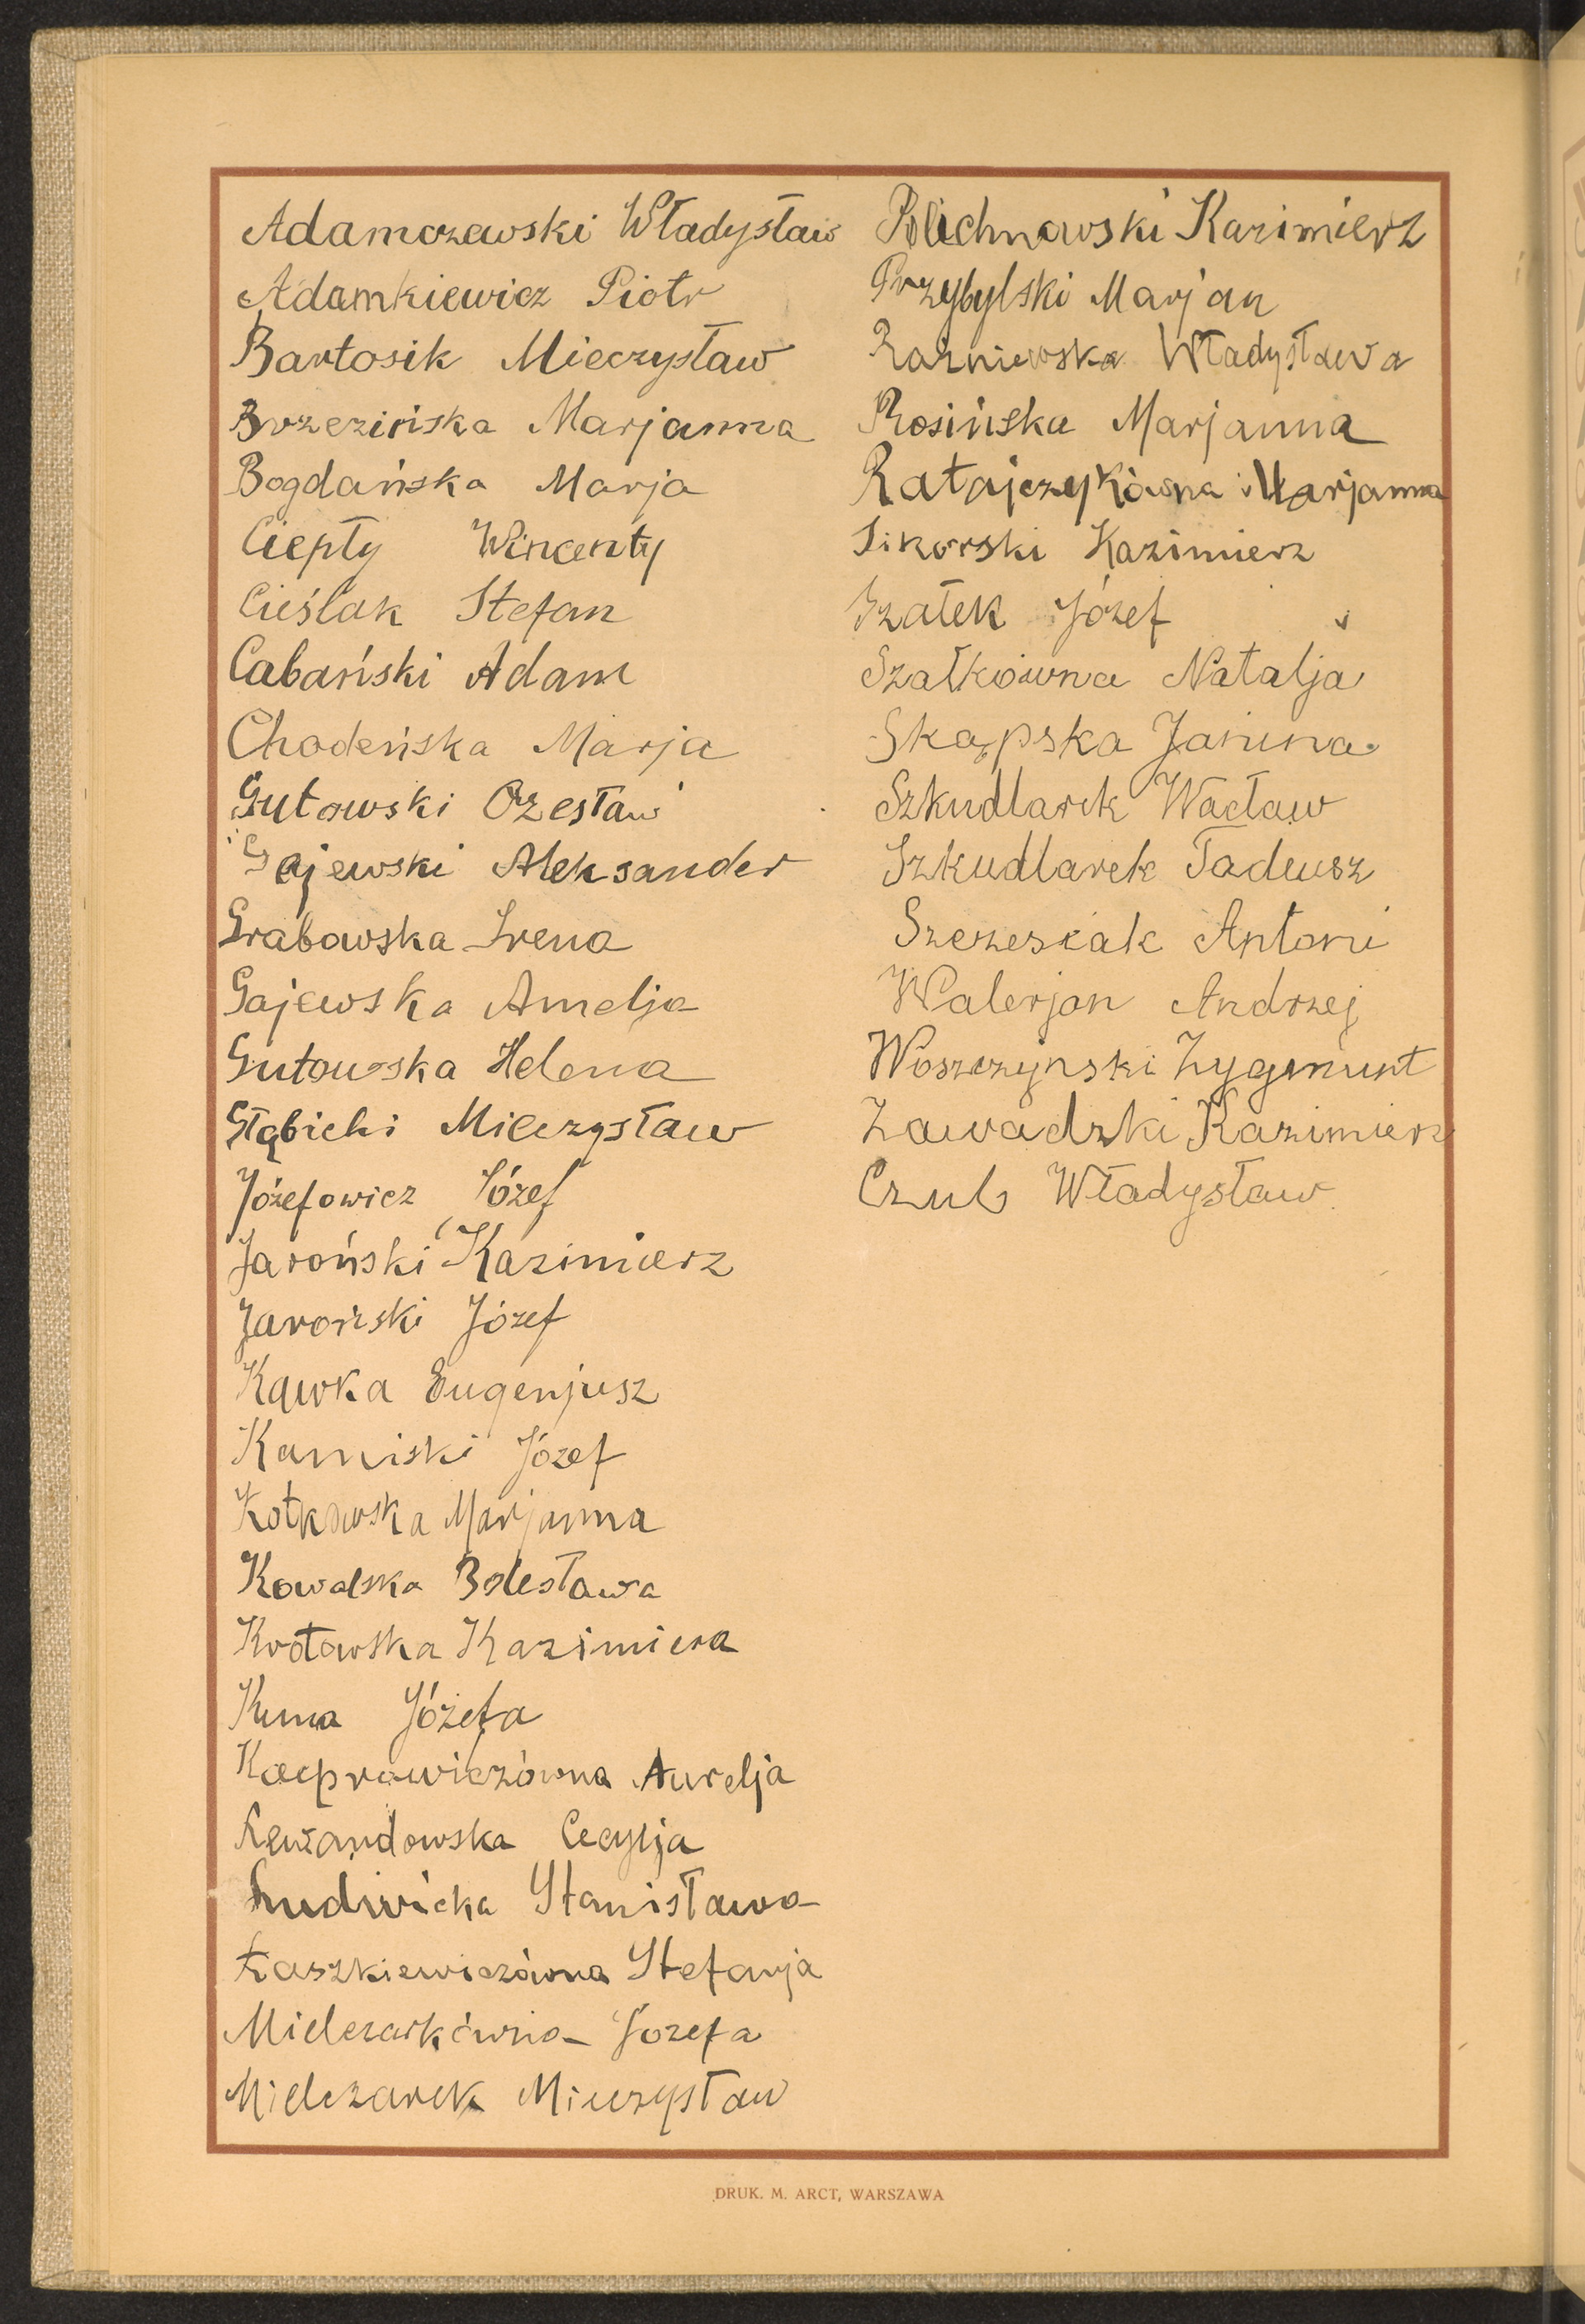 Adamczewski Władysław
Adamkiewicz Piotr
Bartosik Mieczysław
Brzezińska Marjanna
Bogdańska Marja
Ciepły Wincenty
Cieślak Stefan
Cabański Adam
Chodeńska Marja
Gutowski Czesław
Gajewski Aleksander
Grabowska Irena
Gajewska Amelja
Gutowska Helena
Głąbicki Mieczysław
Józefowicz Józef
Jaroński Kazimierz
Jaroński Józef
Kawka Eugenjusz
Kamiski Józef
Kotkowska Marjanna
Kowalska Bolesława
Krotowska Kazimiera
Kuma Józefa
Kacprowiczówna Aurelja
Lewandowska Cecylja
Ludwicka Stanisława
Łaszkiewiczówna Stefanja
Mielczarkówna Józefa
Mielczarek Mieczysław
Polichnowski Kazimierz
Przybylski Marjan
Raźniewska Władysława
Rosińska Marjanna
Ratajczykówna Marjanna
Sikorski Kazimierz
Szałek Józef
Szałkówna Natalja
Skąpska Janina
Szkudlarek Wacław
Szkudlarek Tadeusz
Szczesiak Antoni
Walerjan Andrzej
Woszczynski Zygmunt
Zawadzki Kazimierz
Czub Władysław
DRUK. M. ARCT, WARSZAWA